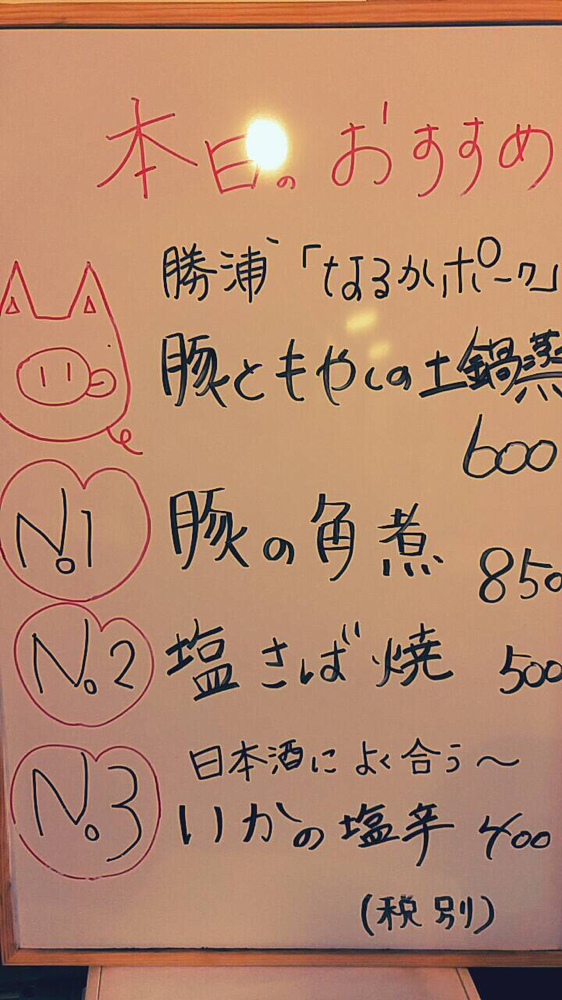 本日のおすすめ
勝浦「なるかポーク」
豚ともやしの土鍋蒸
600
No.1 豚の角煮 850
No.2 塩さば焼 500
日本酒によく合う～
No.3 いかの塩辛 400
(税別)